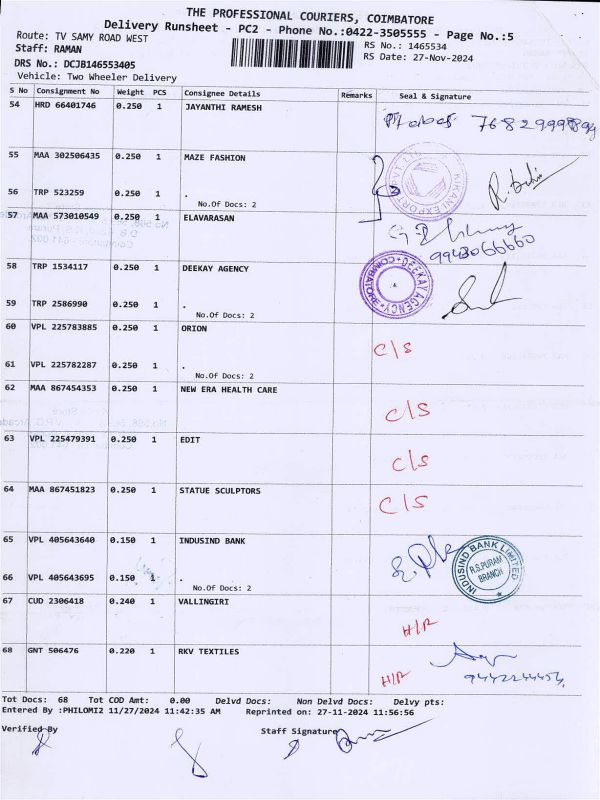 THE PROFESSIONAL COURIERS, COIMBATORE
Delivery Runsheet - PC2 - Phone No.:0422-3505555 - Page No.:5
Route: TV SAMY ROAD WEST
RS No.: 1465534
Staff: RAMAN
RS Date: 27-Nov-2024
DRS No.: DCJB146553405
Vehicle: Two Wheeler Delivery
S No Consignment No Weight PCS Consignee Details Remarks Seal & Signature
54 HRD 66401746 0.250 1 JAYANTHI RAMESH
55 MAA 302506435 0.250 1 MAZE FASHION
56 TRP 523259 0.250 1 .
No.Of Docs: 2
57 MAA 573010549 0.250 1 ELAVARASAN
9943066660
58 TRP 1534117 0.250 1 DEEKAY AGENCY
DEEKAY AGENCY COIMBATORE
59 TRP 2586990 0.250 1 .
No.Of Docs: 2
60 VPL 225783885 0.250 1 ORION
C/S
61 VPL 225782287 0.250 1 .
No.Of Docs: 2
62 MAA 867454353 0.250 1 NEW ERA HEALTH CARE
C/S
63 VPL 225479391 0.250 1 EDIT
C/S
64 MAA 867451823 0.250 1 STATUE SCULPTORS
C/S
65 VPL 405643640 0.150 1 INDUSIND BANK
INDUSIND BANK LIMITED
R.S.PURAM
BRANCH
66 VPL 405643695 0.150 1 .
No.Of Docs: 2
67 CUD 2306418 0.240 1 VALLINGIRI
H/R
68 GNT 506476 0.220 1 RKV TEXTILES
H/R
Tot Docs: 68 Tot COD Amt: 0.00 Delvd Docs: Non Delvd Docs: Delvy pts:
Entered By :PHILOMI2 11/27/2024 11:42:35 AM Reprinted on: 27-11-2024 11:56:56
Verified By Staff Signature